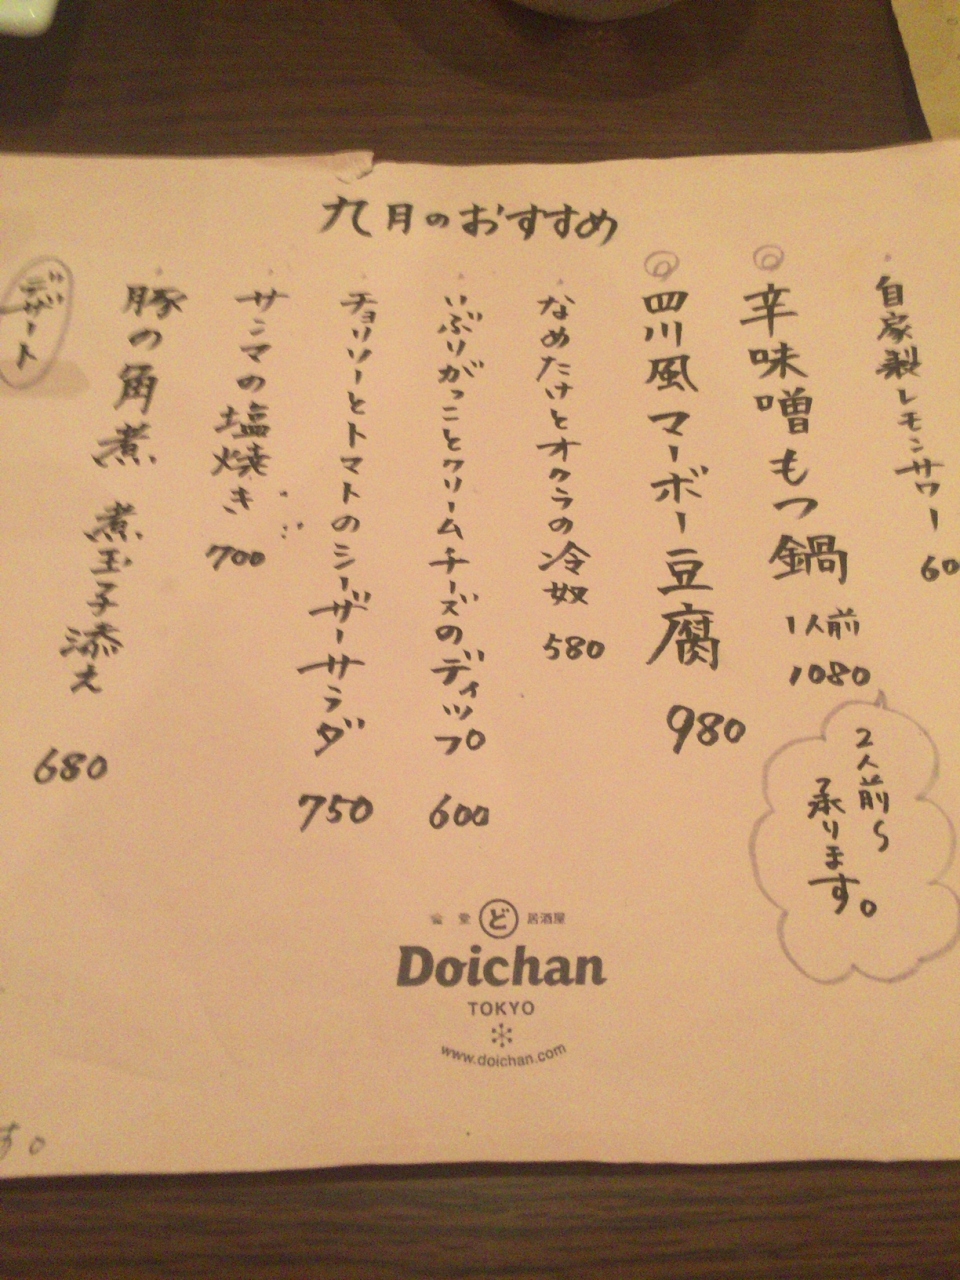 九月のおすすめ
自家製レモンサワー 60
◎辛味噌もつ鍋 1人前 1080
2人前〜
承ります。
◎四川風マーボー豆腐 980
なめたけとオクラの冷奴 580
いぶりがっことクリームチーズのディップ 600
チョリソーとトマトのシーザーサラダ 750
サンマの塩焼き 700
豚の角煮 煮玉子添え 680
デザート
食堂 ど 居酒屋
Doichan
TOKYO
www.doichan.com
す。